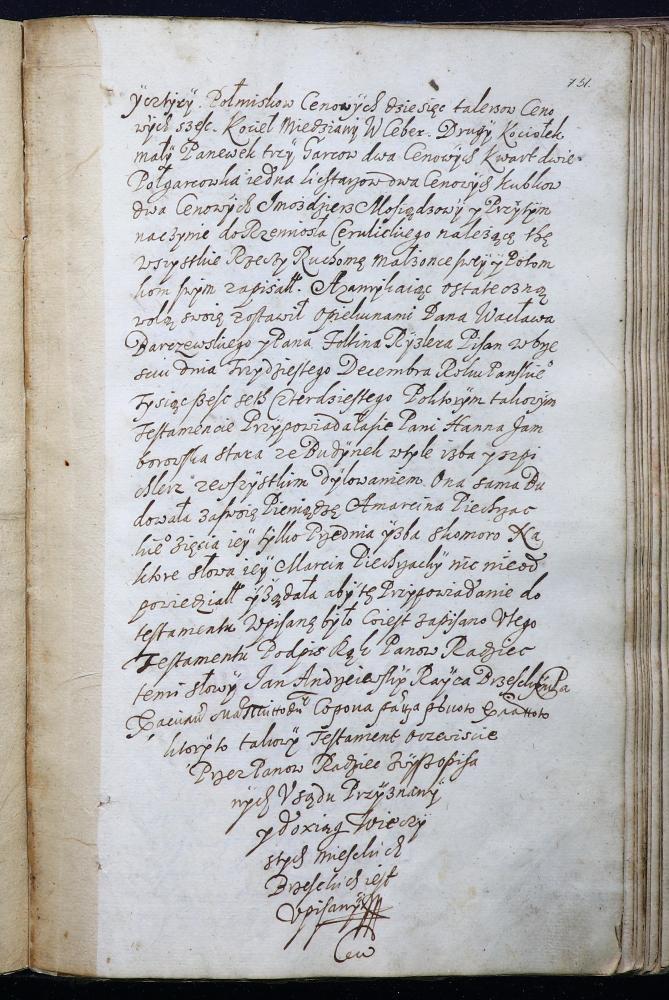 751.
y cztyry. Połmiskow Cenowych dziesięc talerzow Ceno
wych szesc. Kocieł Miedziany W Ceber. Drugi Kociołek
mały Panewek trzy Garcow dwa Cenowych Kwart dwie
Połgarcowka iedna lichtarzow dwa Cenowych kubkow
dwa Cenowych Imozdzierz Mosiądzowy y Przytym
naczynie do Rzemiosła Cerulickiego należącę the
wszystkie Rzeczy Ruchomę małżonce swey y Potom
kom swym zapisał. A zamykaiąc ostateczną
wolą swoią zostawił opiekunami Pana Wacława
Barczewskiego y Pana Foltina Ryzlera Pisan w Brze
sciu dnia Trzydziestego Decembra Roku Panskie°
Tysiąc szesc seth Czterdziestego Po ktorym takowym
Testamencie Przypowiadałasie Pani Hanna Jam
borowska stara ze Budynek wtyle izba y szpi
chlerz ze wszystkim dylowaniem Ona sama Bu
dowała za swoię Pieniądzę A marcina Piechzac
kie° zięcia iey tylko Przednia yzba skomoro Na
ktore słowa iey Marcin Piechzacky nic nieod
powiedziałł y żądała aby tę Przypowiadanie do
testamentu wpisanę było Coiest zapisano U tego
Testamentu Podpis Rąk Panow Radziec
temi słowy Jan Andrzeiewsky Rayca Brzesky
ktory to takowy Testament oczewiscie
Przez Panow Radziec zwysz opisa
nych Urzędu Przyznany
y do xiąg Wieczy
stych mieskich
Brzeskich iest
wpisany